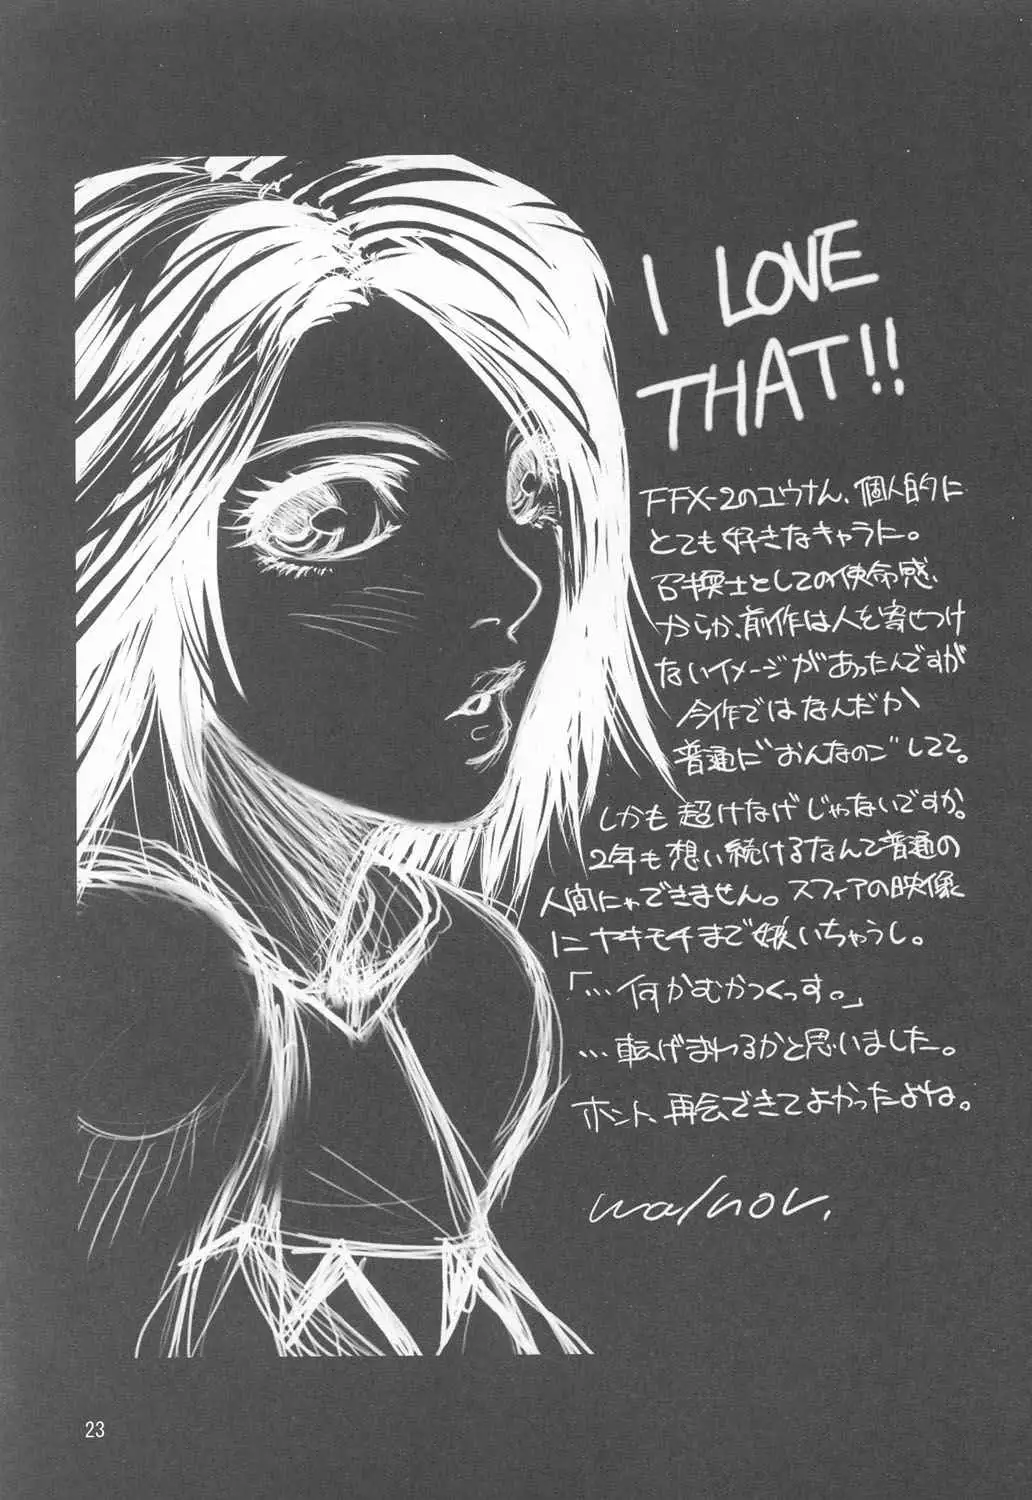 I LOVE
THAT!!
FFX-2のユウナん、個人的に
とても好きなキャラに。
召喚士としての使命感、
からか、前作は人を寄せつけ
ないイメージがあったんですが
今作ではなんだか
普通に"おんなのこ"してて。
しかも超けなげじゃないですか。
2年も想い続けるなんて普通の
人間にゃできません。スフィアの映像
にヤキモチまで妬いちゃうし。
「…何かむかつくっす。」
…転げまわるかと思いました。
ホント、再会できてよかったよね。
walnov.
23